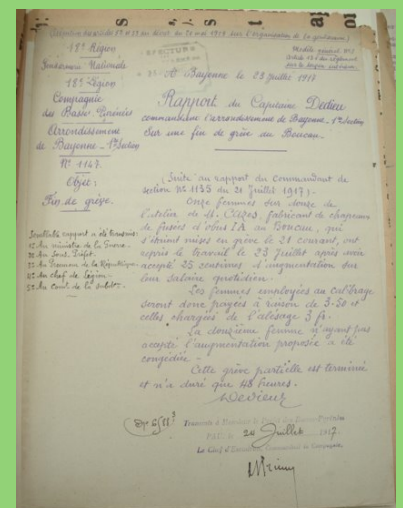 18e Région
Gendarmerie Nationale
18e Légion
Compagnie
des Basses Pyrénées
Arrondissement
de Bayonne - 1re Section
N° 1147.
Objet:
Fin de grève.
Semblable rapport a été transmis:
au ministre de la Guerre.
au Sous Préfet.
au Procureur de la République.
au chef de légion.
PRÉFECTURE
A Bayonne le 23 Juillet 1917
Rapport du Capitaine Dedieu
commandant l'arrondissement de Bayonne, 1re Section
Sur une fin de grève au Boucau.
(Suite au rapport du commandant de
section N° 1135 du 21 Juillet 1917).
Onze femmes sur douze de
l'atelier de M. Cazes, fabricant de chapeaux
de fusées d'obus I.A. au Boucau, qui
s'étaient mises en grève le 21 courant, ont
repris le travail le 23 Juillet après avoir
accepté 25 centimes d'augmentation sur
leur salaire quotidien.
Les femmes employées au calibrage
seront donc payées à raison de 3.50 et
celles chargées de l'alésage 3 fr.
La douzième femme n'ayant pas
accepté l'augmentation proposée a été
congédiée.
Cette grève partielle est terminée
et n'a duré que 48 heures.
Dedieu
Transmis à Monsieur le Préfet des Basses-Pyrénées
PAU, le 24 Juillet 1917
Le Chef d'Escadron, Commandant la Compagnie,